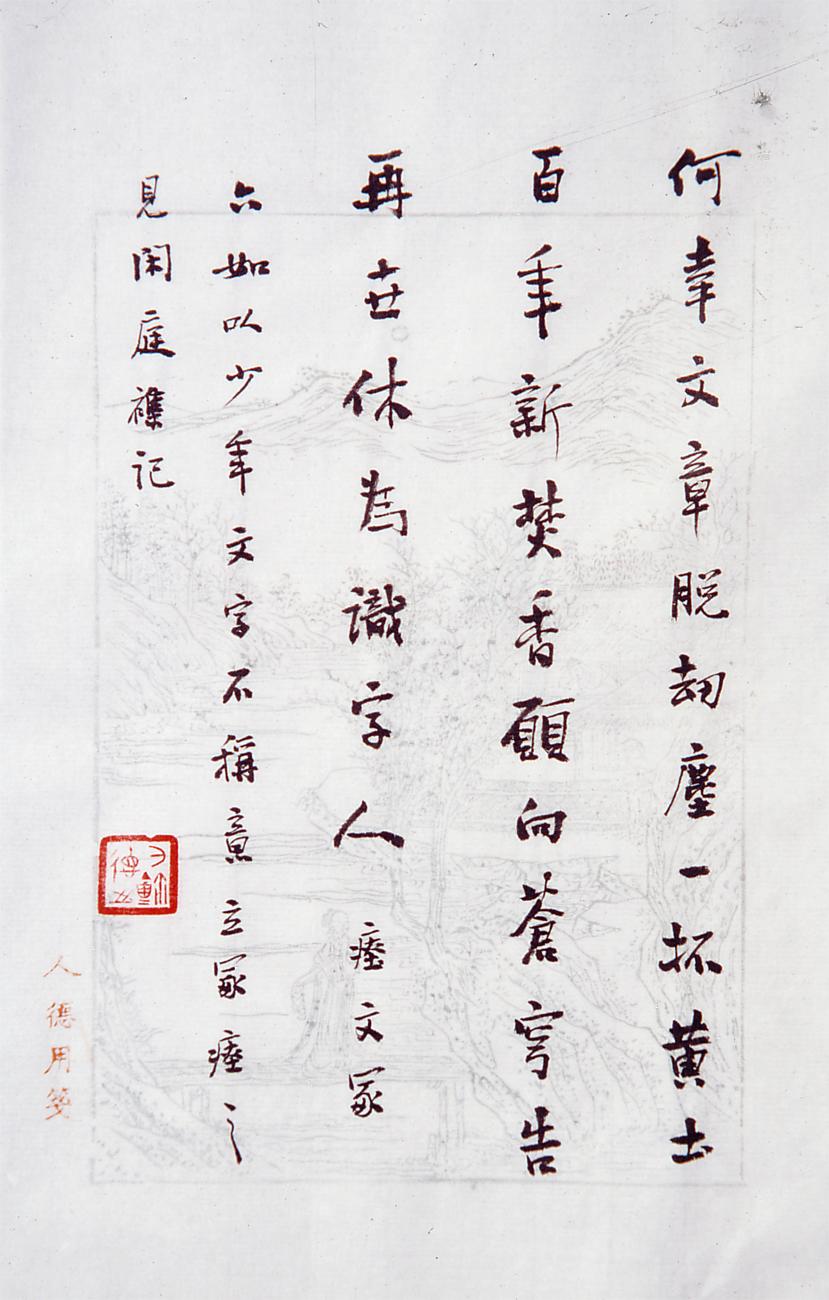 何幸文章脱劫塵一抔黃土
百年新焚香願向蒼穹告
再世休為識字人 瘞文冢
六如以少年文字不稱意立冢瘞之
見閑庭襍記
人德用箋